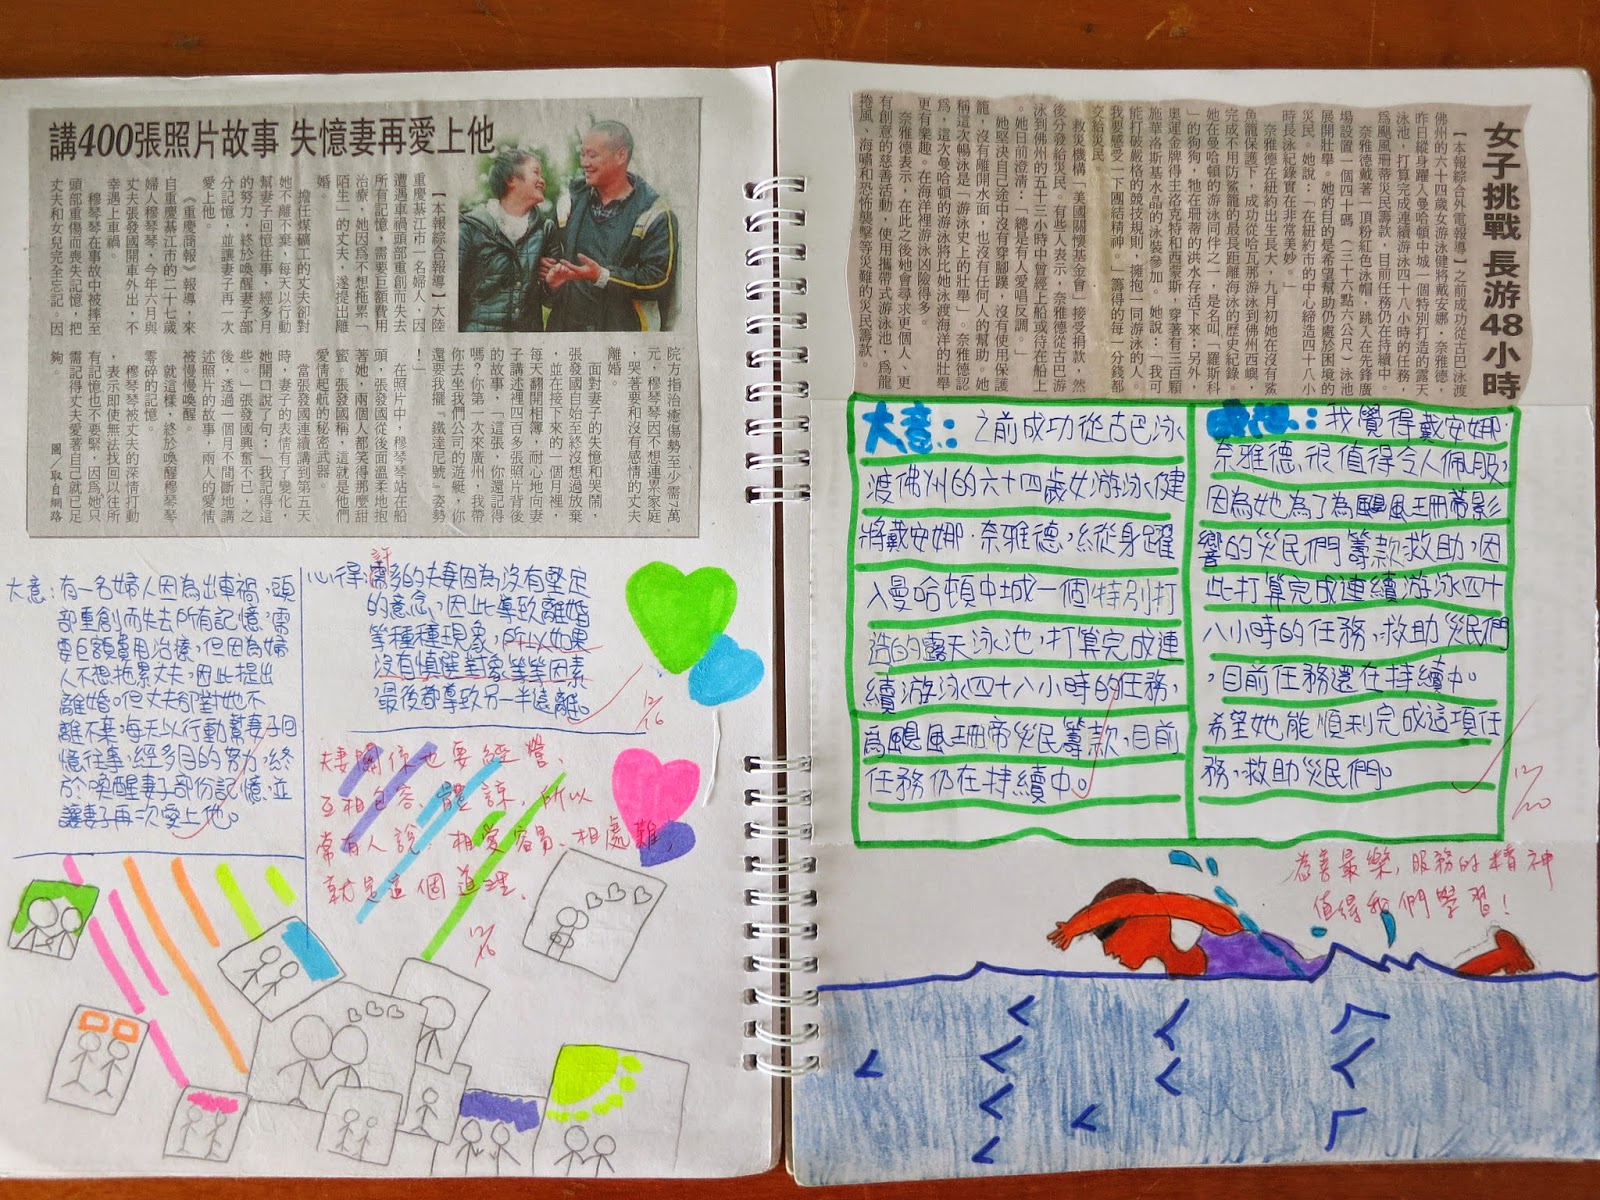 講400張照片故事 失憶妻再愛上他
【本報綜合報導】大陸
重慶綦江市一名婦人，因
遭遇車禍頭部重創而失去
所有記憶，需要巨額費用
治療，她因為不想拖累「
陌生」的丈夫，遂提出離
婚。
擔任煤礦工的丈夫卻對
她不離不棄，每天以行動
幫妻子回憶往事，經多月
的努力，終於喚醒妻子部
分記憶，並讓妻子再一次
愛上他。
《重慶商報》報導，來
自重慶綦江市的二十七歲
婦人穆琴琴，今年六月與
丈夫張發國開車外出，不
幸遇上車禍。
穆琴琴在事故中被撞至
頭部重傷而喪失記憶，把
丈夫和女兒完全忘記。因
院方指治癒傷勢至少需7萬
元，穆琴琴因不想連累家庭
，哭著要和沒有感情的丈夫
離婚。
面對妻子的失憶和哭鬧，
張發國自始至終沒想過放棄
，並在接下來的一個月裡，
每天翻開相簿，耐心地向妻
子講述裡四百多張照片背後
的故事，「這張，你還記得
嗎？你第一次來廣州，我帶
你去坐我們公司的遊艇，你
還要我擺『鐵達尼號』姿勢
！」
在照片中，穆琴琴站在船
頭，張發國從後面溫柔地抱
著她，兩個人都笑得那麼甜
蜜。張發國稱，這就是他們
愛情起航的秘密武器。
當張發國連續講到第五天
時，妻子的表情有了變化，
她開口說了句：「我記得這
些。」張發國興奮不已，之
後，透過一個月不間斷地講
述照片的故事，兩人的愛情
被慢慢喚醒。
就這樣，終於喚醒穆琴琴
零碎的記憶。
穆琴琴被丈夫的深情打動
，表示即使無法找回以往所
有記憶也不要緊，因為她只
需記得丈夫愛著自己就已足
夠。
圖／取自網路
大意：有一名婦人因為出車禍，頭
部重創而失去所有記憶，需
要巨額費用治療，但因為婦
人不想拖累丈夫，因此提出
離婚。但丈夫卻對她不
離不棄，每天以行動幫妻子回
憶往事，經多目的努力，終
於喚醒妻子部份記憶，並
讓妻子再次愛上他。
許
心得：需多的夫妻因為沒有堅定
的意念，因此導致離婚
等種種現象，所以如果
沒有慎選對象等等因素
，最後都導致另一半遠離。
12/16
夫妻關係也要經營、
互相包容、體諒，所以
常有人說：相愛容易、相處難，
就是這個道理、
12/16
女子挑戰 長游48小時
【本報綜合外電報導】之前成功從古巴泳渡
佛州的六十四歲女游泳健將戴安娜‧奈雅德，
昨日縱身躍入曼哈頓中城一個特別打造的露天
泳池，打算完成連續游泳四十八小時的任務，
為颶風珊蒂災民籌款，目前任務仍在持續中。
奈雅德戴著一頂粉紅色泳帽，跳入在先鋒廣
場設置一個四十碼（三十六點六公尺）泳池
展開壯舉。她的目的是希望幫助仍處於困境的
災民。她說：「在紐約市的中心締造四十八小
時長泳紀錄實在非常美妙。」
奈雅德在紐約出生長大，九月初她在沒有鯊
魚籠保護下，成功從哈瓦那游泳到佛州西嶼，
完成不用防鯊籠的最長距離海泳的歷史紀錄。
她在曼哈頓的游泳同伴之一，是名叫「羅斯科
」的狗狗，牠在珊蒂的洪水存活下來；另外，
奧運金牌得主洛克特和西蒙斯，穿著有三百顆
施華洛斯基水晶的泳裝參加。她說：「我可
能打破嚴格的競技規則，擁抱一同游泳的人。
我要感受一下團結精神。」籌得的每一分錢都
交給災民。
救災機構「美國關懷基金會」接受捐款，然
後分發給災民。有些人表示，奈雅德從古巴游
泳到佛州的五十三小時中曾經上船或待在船上
。她日前澄清：「總是有人愛唱反調。」
她堅決自己途中沒有穿腳蹼，沒有使用保護
籠，沒有離開水面，也沒有任何人的幫助。她
稱這次暢泳是「游泳史上的壯舉」。奈雅德認
為，這次曼哈頓的游泳將比她泳渡海洋的壯舉
更有樂趣。在海洋裡游泳凶險得多。
奈雅德表示，在此之後她會尋求更個人、更
有創意的慈善活動，使用攜帶式游泳池，為龍
捲風、海嘯和恐怖襲擊等災難的災民籌款。
大意：之前成功從古巴泳
渡佛州的六十四歲女游泳健
將戴安娜‧奈雅德，縱身躍
入曼哈頓中城一個特別打
造的露天泳池，打算完成連
續游泳四十八小時的任務，
為颶風珊帝災民籌款，目前
任務仍在持續中。
感想：我覺得戴安娜‧
奈雅德很值得令人佩服，
因為她為了為颶風珊蒂影
響的災民們籌款救助，因
此打算完成連續游泳四十
八小時的任務，救助災民們
，目前任務還在持續中。
希望她能順利完成這項任
務，救助災民們。
12/20
為善最樂，服務的精神
值得我們學習！